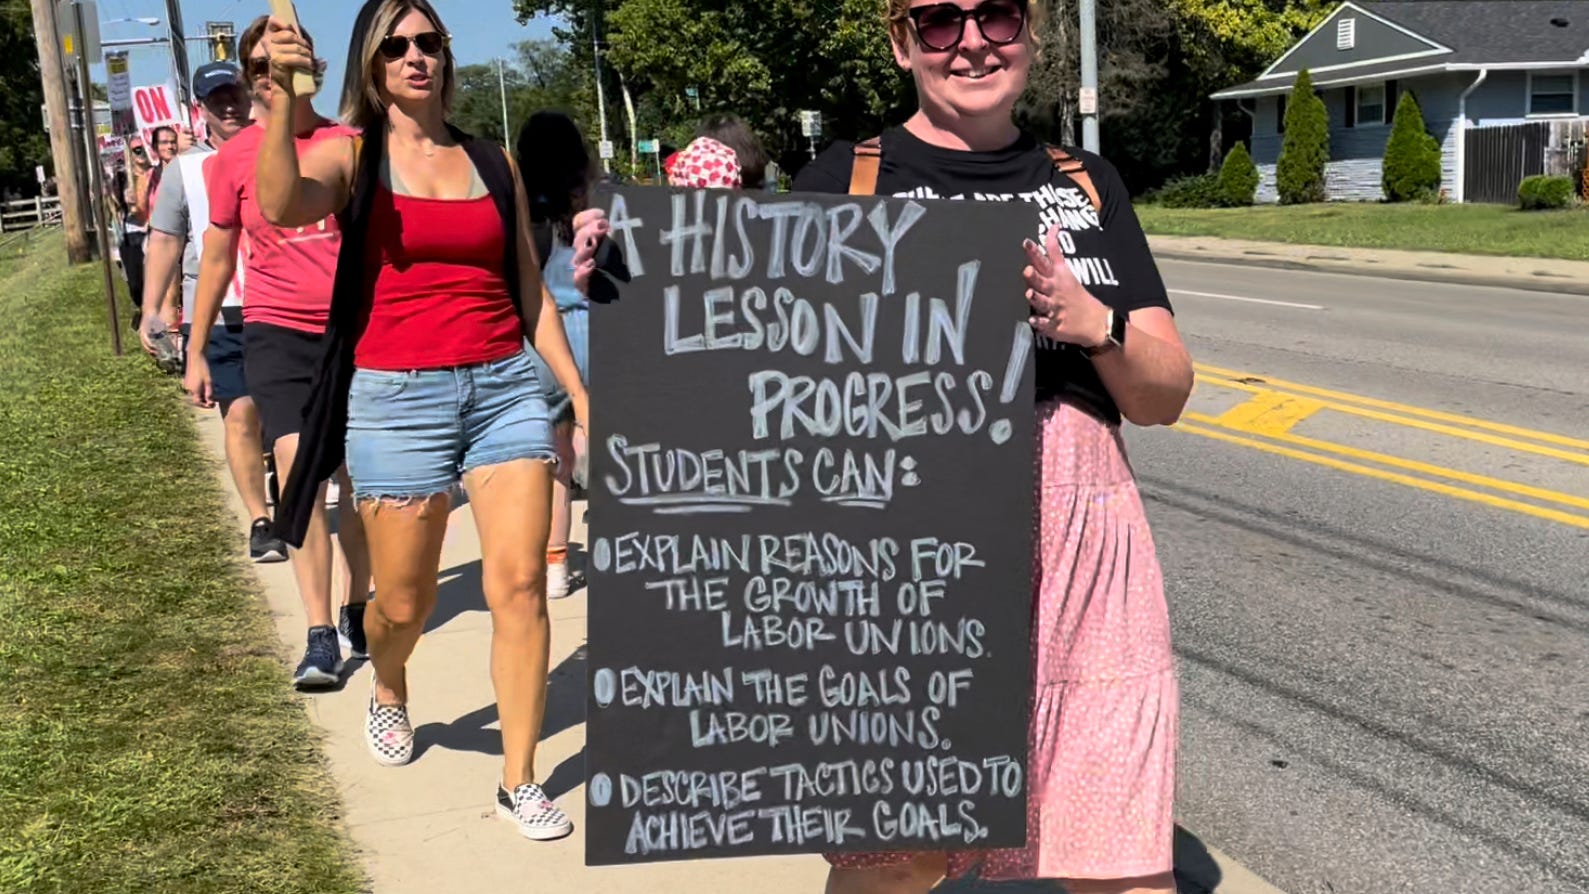 ON
A HISTORY
LESSON IN
PROGRESS!
STUDENTS CAN:
EXPLAIN REASONS FOR
THE GROWTH OF
LABOR UNIONS.
EXPLAIN THE GOALS OF
LABOR UNIONS.
DESCRIBE TACTICS USED TO
ACHIEVE THEIR GOALS.
ARE THOSE
WILL